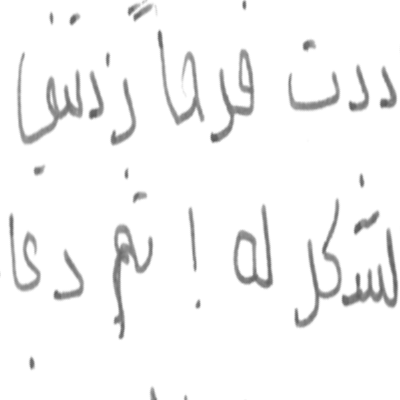 ددت فرحاً زدتني
لشكر له ! ثم دعا